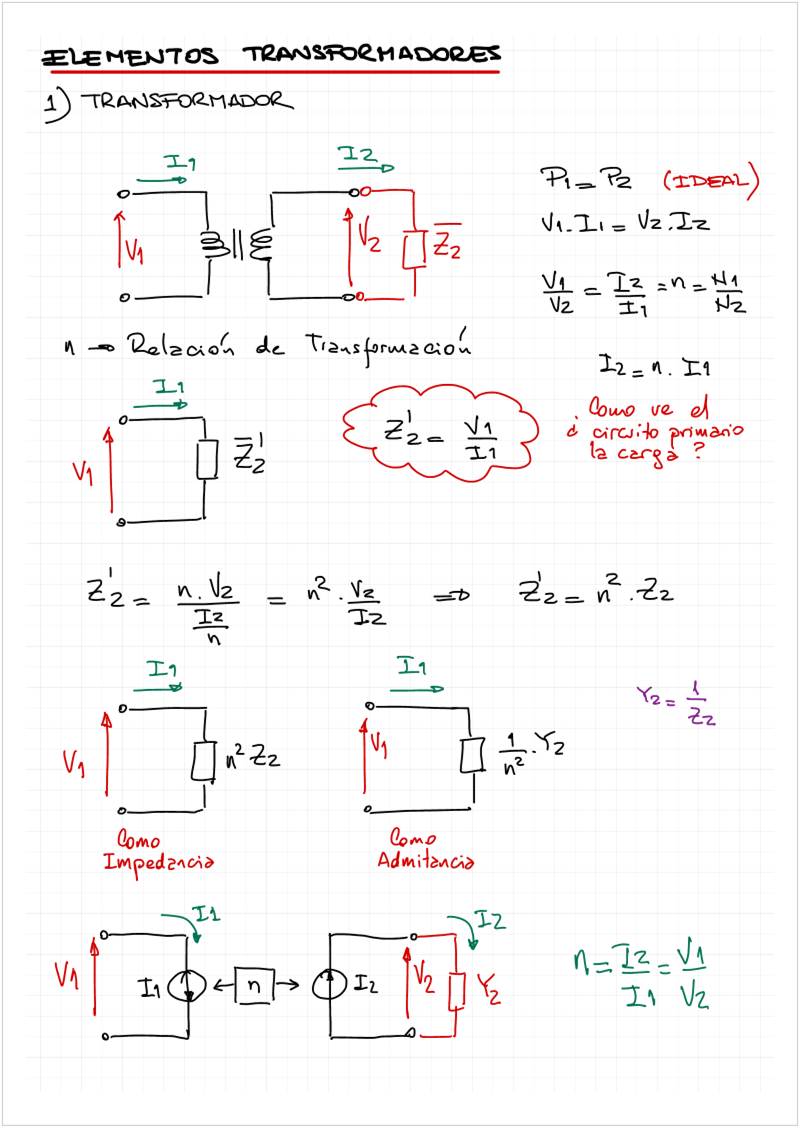 ELEMENTOS TRANSFORMADORES
1) TRANSFORMADOR
I1
I2
V1
V2
Z̅2
P1 = P2 (IDEAL)
V1 . I1 = V2 . I2
V1/V2 = I2/I1 = n = N1/N2
n → Relación de Transformación
I2 = n . I1
I1
V1
Z̅2'
Z2' = V1/I1
¿ Como ve el
circuito primario
la carga ?
Z2' = n . V2 / (I2/n) = n² . V2/I2 ⇒ Z2' = n² . Z2
I1
V1
n² Z2
Como
Impedancia
I1
V1
1/n² . Y2
Como
Admitancia
Y2 = 1/Z2
I1
V1
I1
n
I2
I2
V2
Y2
n = I2/I1 = V1/V2